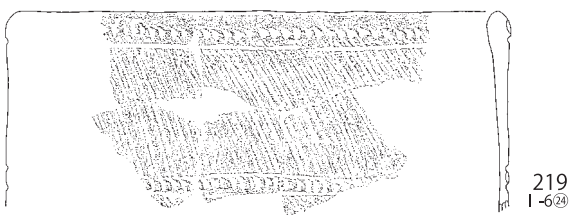 219
Ⅰ-6㉔